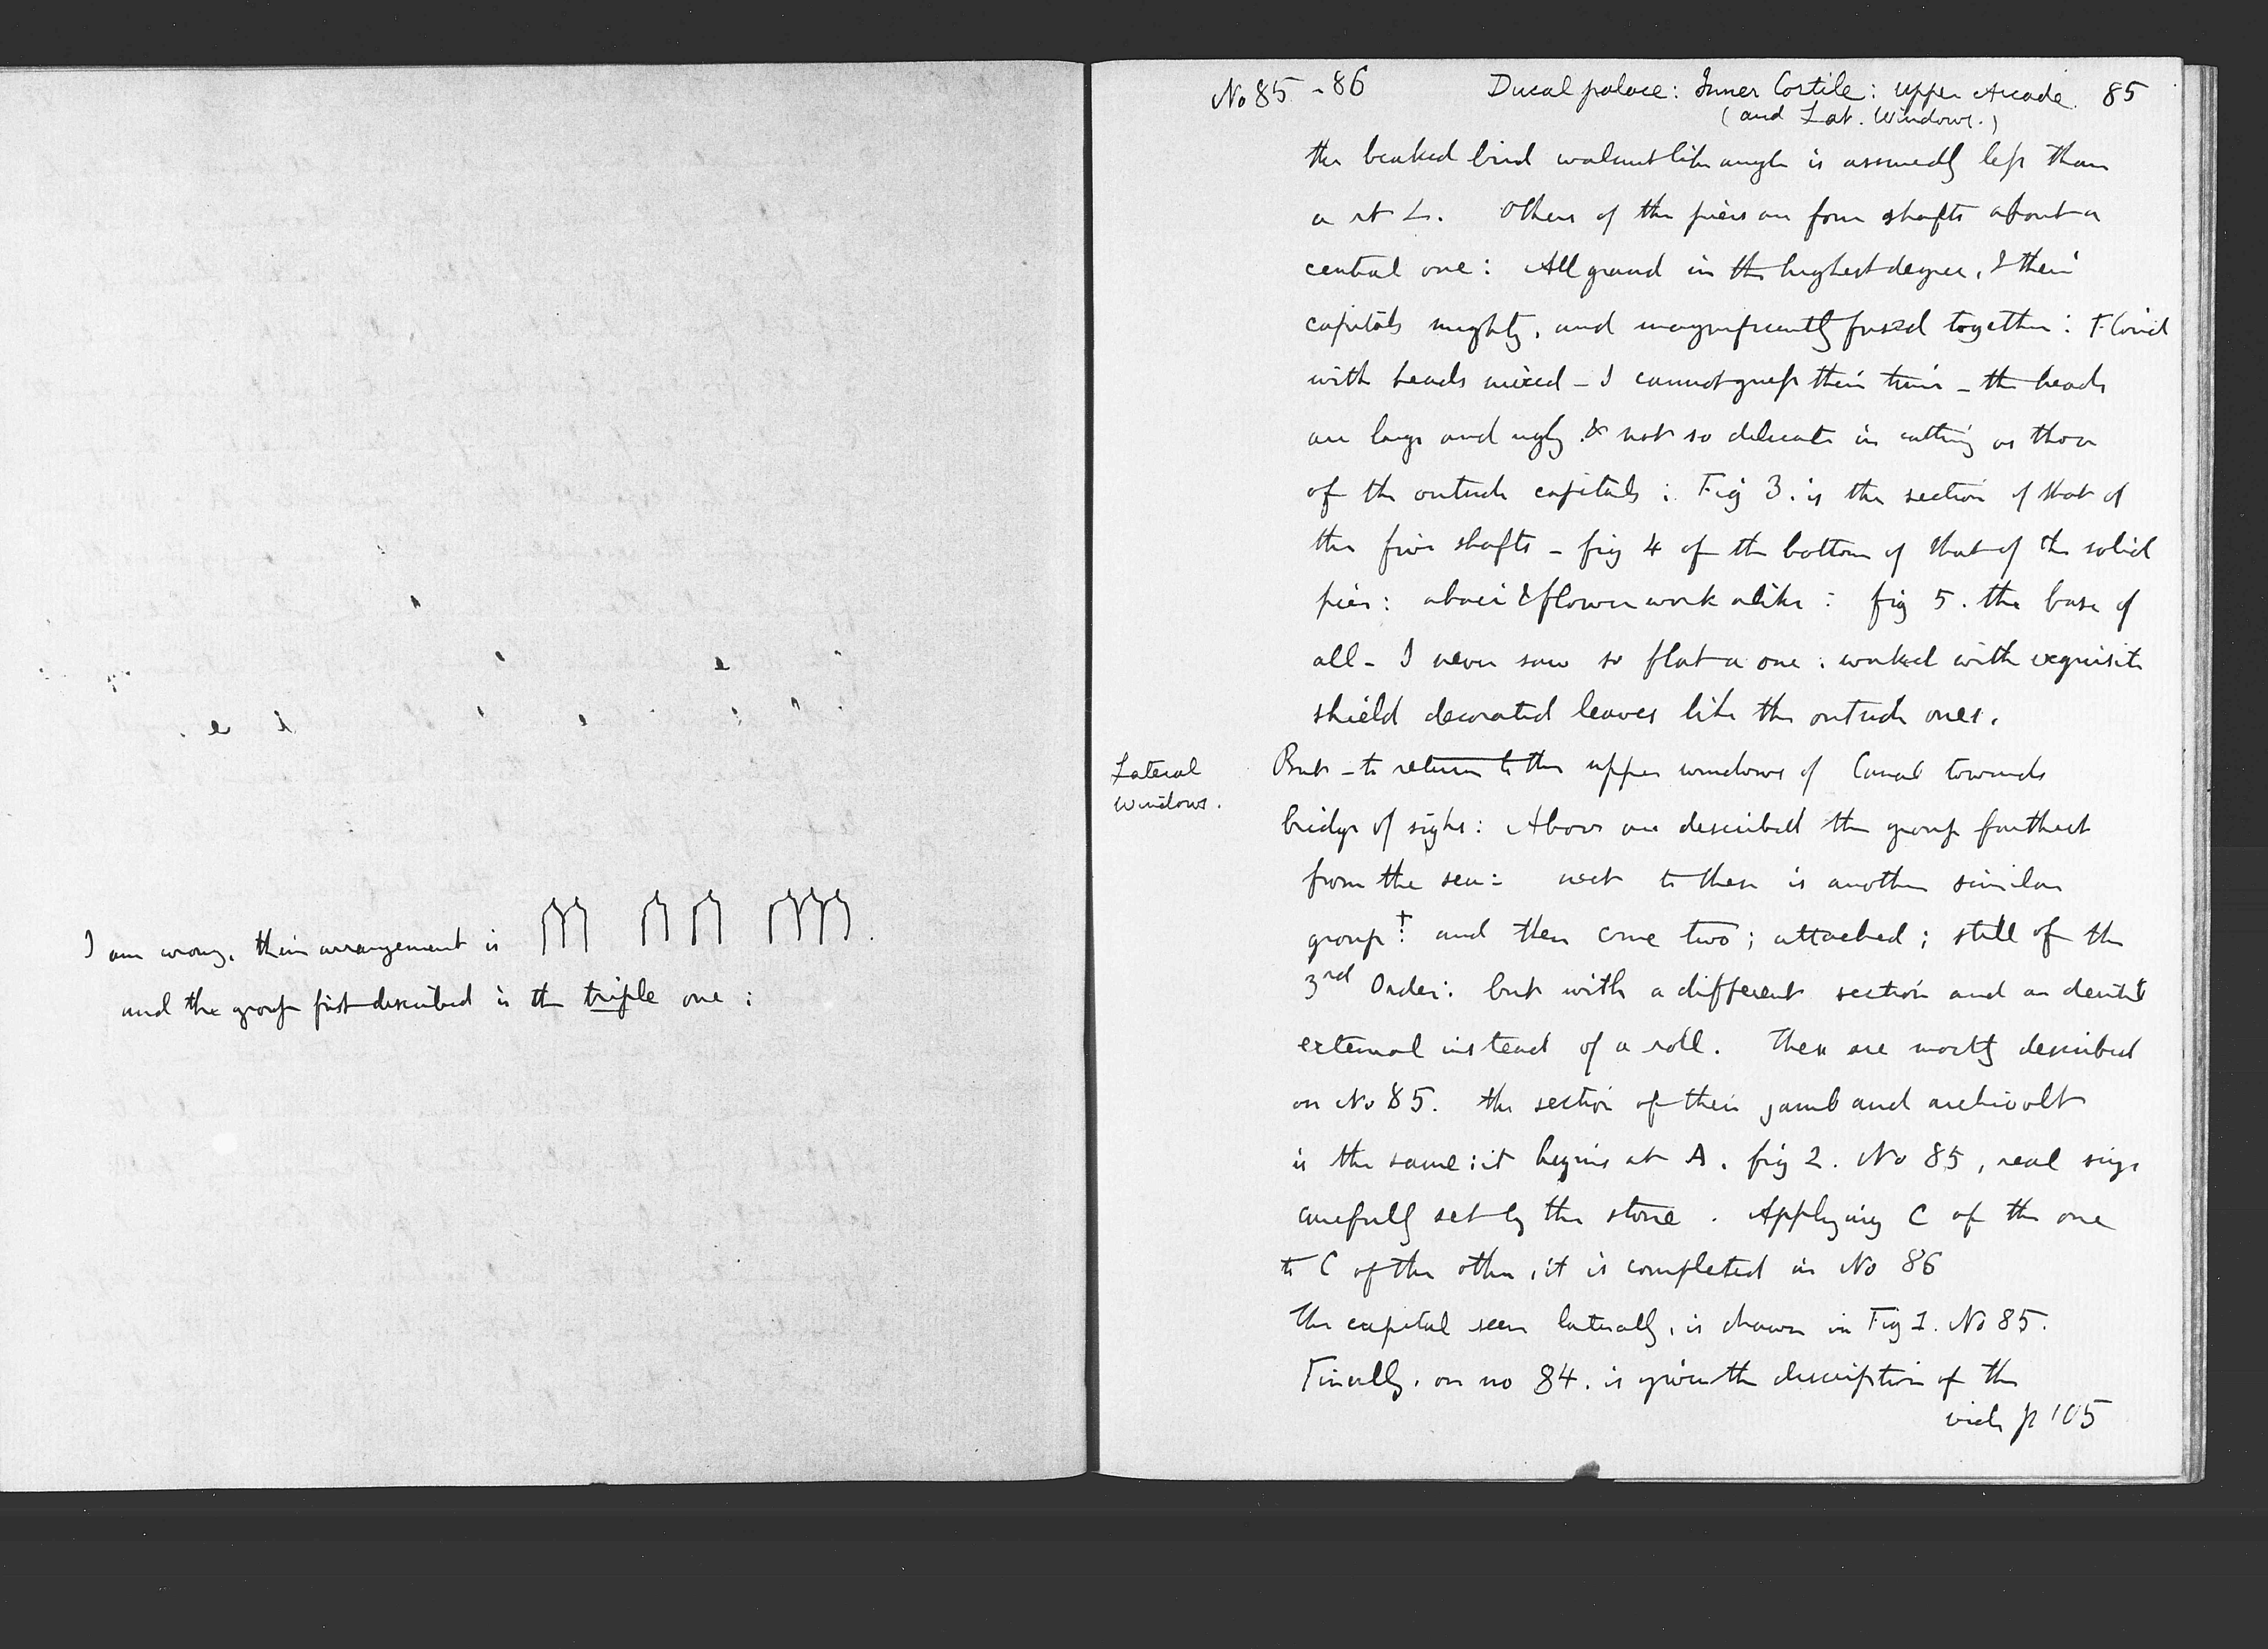 I am wrong. their arrangement is
and the group first described is the triple one :
No 85 - 86
Ducal palace : Inner Cortile : upper Arcade. 85
(and Lat. Windows.)
the beaked bird like angle is assuredly less than
a rt L. Others of the piers are four shafts about a
central one : All grand in the highest degree, & their
capitals mighty, and magnificently fused together : Florid
with heads mixed - I cannot guess their time - the heads
are large and ugly & not so delicate in cutting as those
of the outside capitals : Fig 3. is the section of that of
the five shafts - fig 4 of the bottom of that of the solid
pier : abaci & flower work alike : fig 5. the base of
all - I never saw so flat a one : worked with exquisite
shield decorated leaves like the outside ones.
Lateral
Windows.
But - to return to the upper windows of Canal towards
bridge of sighs : Above are described the group farthest
from the sea : next to these is another similar
group † : and then come two ; attached ; still of the
3rd Order : but with a different section and a dentil
external instead of a roll. These are mostly described
on No 85. the section of their jamb and archivolt
is the same : it begins at A. fig 2. No 85, real size
carefully set by the stone. Applying C of the one
to C of the other, it is completed in No 86
The capital seen laterally, is shown in Fig 1. No 85.
Finally. on no 84. is given the description of the
vide p 105